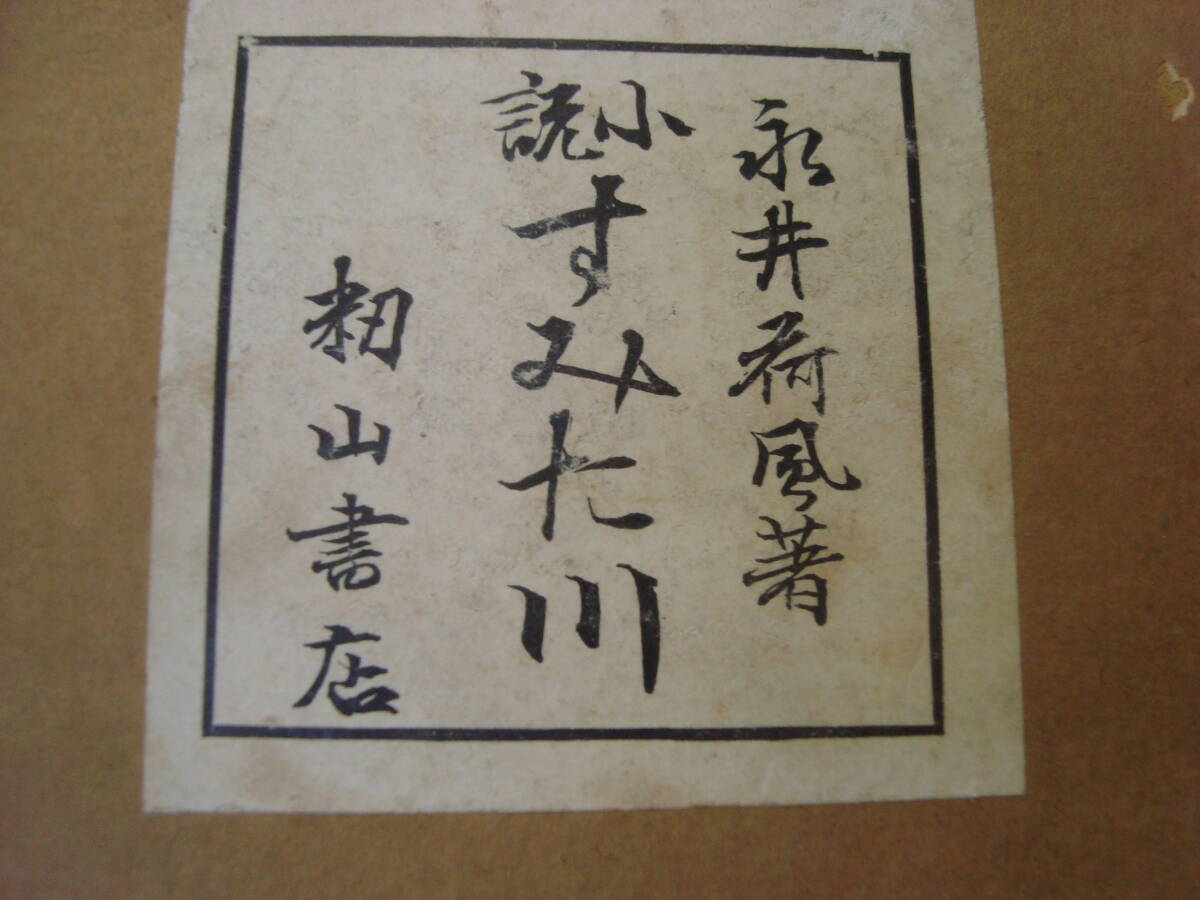 永井荷風著
小説すみた川
籾山書店